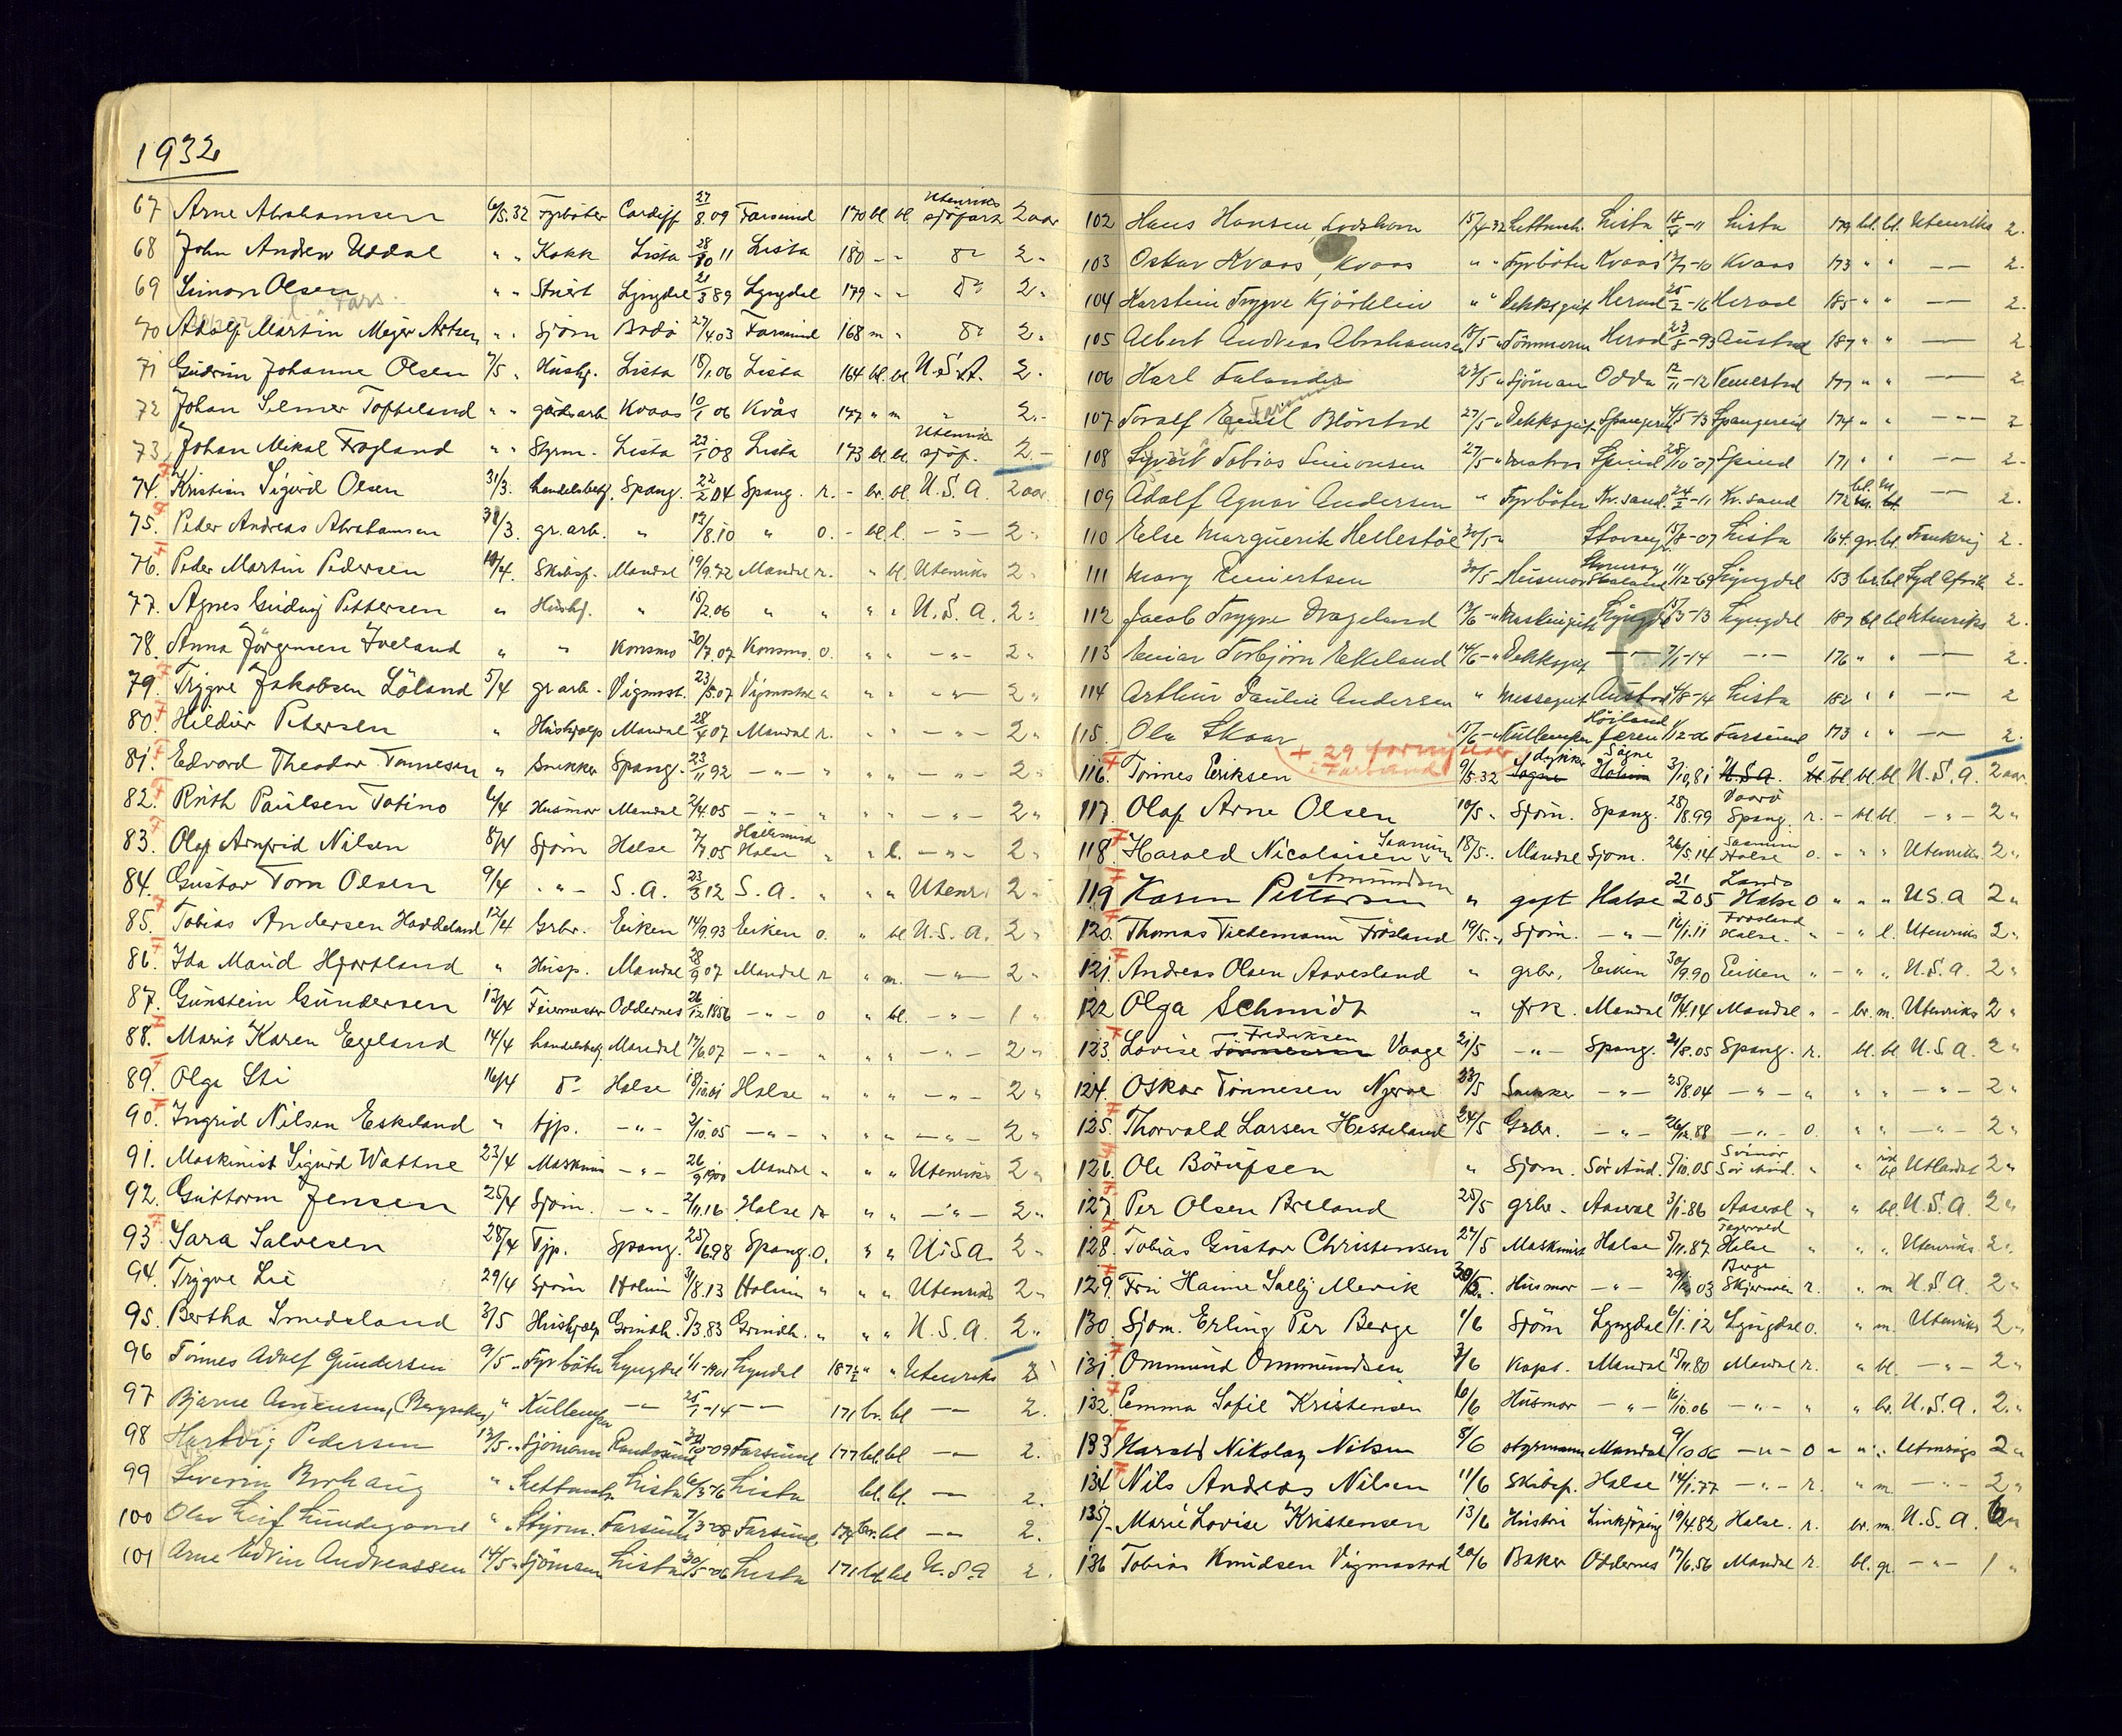 1932
67 Arne Abrahamsen 6/5.32 Fyrböter Cardiff 27/8.09 Farsund 170 bl. bl. Utenriks sjöfart 2 aar
68 John Andrew Uddal " " Kokk Lista 28/10 11 Lista 180 - - do 2 "
69 Simon Olsen " " Stuert Lyngdal 21/3 89 Lyngdal 179 " " do 2 "
70 Adolf Martin Mejer Artsen " " Sjöm Bodö 27/4.03 Farsund 168 m " do 2 "
71 Gudrun Johanne Olsen 7/5 " Hushj. Lista 18/1.06 Lista 164 bl. bl U.S.A. 2 "
72 Johan Selmer Tofteland " " gårdsarb Kvaas 10/1 06 Kvås 177 " m " 2.-
73 Johan Mikal Frogland " " Styrm. Lista 22/1 08 Lista 173 bl. bl. Utenriks sjöf. 2.-
74. Kristian Sigurd Olsen 31/3. handelsbetj. Spang. 22/2 04 Spang. r. - br. bl. U.S.A. 2 aar
75. Peder Andreas Abrahamsen 31/3. gr. arb. " 12/8.10 " o. - bl. l. - " - 2 "
76. Peder Martin Pedersen 19/4. Skibsf. Mandal 19/9.72 Mandal r. " bl. Utenriks 2 "
77. Agnes Gudvig Pettersen " Hushj. " 15/2.06 " " " " U.S.A. 2 "
78. Anna Jörgensen Iveland " " Konsmo 30/7.07 Konsmo. o. " " - " - 2 "
79. Trygve Jakobsen Löland 5/4 gr arb. Vigmost. 23/5 07 Vigmostad " " " - " - 2 "
80. Hildur Petersen " Hushjælp Mandal 28/4 07 Mandal r. " " - " - 2 "
81. Edvard Theodor Tønnesen " Snekker Spang. 23/11 92 - " - " " " - " - 2 "
82. Ruth Paulsen Tobino 6/4 Husmor Mandal 2/4.05 - " - " " " - " - 2 "
83. Olaf Arnfrid Nilsen 8/4 Sjöm Halse 7/7.05 Halse " " l. - " - 2 "
84. Gustav Tom Olsen 9/4 - " - S. A. 23/3 12 S. A. " " " Utenr. 2 "
85. Tobias Andersen Haddeland 12/4 Grbr. Eiken 14/9.93 Eiken o. " bl U.S.A. 2 "
86. Ida Maud Hjortland " Husp. Mandal 28/9 07 Mandal r " m. - " - 2 "
87. Gunstein Gundersen 12/4 Feiermester Oddernes 26/12 1856 - " - o " bl. - " - 1 "
88. Marit Karen Egeland 14/4 handelsbetj Mandal 17/6.07 - " - " " " - " - 2 "
89. Olga Sti 16/4 do Halse 18/10.01 Halse " " " - " - 2 "
90. Ingrid Nilsen Eskeland " tjp. - " - 2/10.05 - " - " " " - " - 2 "
91. Maskinist Sigurd Wattne 23/4 Maskinis - " - 26/9 1900 Mandal " " " Utenriks 2 "
92. Guttorm Jensen 25/4 Sjöm. - " - 2/11.16 Halse r " " - " - 2 "
93. Sara Salvesen 28/4 Tjp. Spang. 25/6.98 Spang. o. " " U.S.A. 2 "
94. Trygve Lie 29/4 Sjöm Holum 31/8.13 Holum " " " Utenriks 2 "
95. Bertha Smedsland 3/5 Hushjælp Grindh. 5/3.83 Grindh. " " " U.S.A. 2 "
96 Tönnes Adolf Gundersen 9/5 " Fyrböter Lyngdal 1/11-1901 Lyngdal 187½ " " Utenriks 2
97 Bjarne " Kullemper - - 25/1-14 - - 171 br. bl - - 2.
98 Hartvig Pedersen 13/5 " Sjömann Randesund -09 Farsund 177 bl. bl - - 2.
99 Severin Borhaug " Lettmatr. Lista Lista bl. bl. - - 2.
100 Olav Leif Lundegaard " Styrm. Farsund 7/3-08 Farsund br. bl - - 2.
101 Arne Edvin Andreassen 14/5 - Sjömann Lista 30/5-06 Lista 171 bl. bl U.S.A 2.
102 Hans Hansen Lodshavn 15/4-32 Lettmatr. Lista -11 Lista 179 bl. bl. Utenriks 2.
103 Oskar Kvaas, Kvaas " " Fyrböter Kvaas -10 Kvaas 173 " " - - 2.
104 Karstein Trygve Kjörklein " " Dekksgut Herad 25/2-16 Herad 185 " " - - 2.
105 Albert Andreas Abrahamsen 18/5 - Tömmerm Herad 23/8-93 Austad 187 " " - - 2
106 Karl Falander 23/5 " Sjöman Odda 12/11-12 Vennestad 177 " " - - 2
107 Toralf Emil Blörstad 27/5 " Dekksgut Spangereid -13 Spangereid 174 " " - - - 2
108 Syvert Tobias Simonsen 27/5 " Matros Spind 28/10-07 Spind 171 " " - - 2.
109 Adolf Agnar Andersen " Fyrböter Kr.sand. 24/2-11 Kr.sand 172 bl. - - 2.
110 Else Marguerite Hellestöl 30/5-" -07 Lista 164. gr. bl. Frankrig 2.
111 Mary Reinertsen 30/5 - Husmor 11/12-69 Lyngdal 153 br. bl Syd Afrika 2.
112 Jacob Trygve Drageland 13/6 - " Maskingutt Lyngdal -13 Lyngdal 187 bl bl Utenriks 2.
113 Einar Torbjörn Ekeland 14/6 - " Dekksgut - - 7/1-14 - - - 176 " " - - 2.
114 Arthur Paulin Andersen " Messegut Austad -14 Lista 182 " " - - 2
115. Ola Skaar 15/6 - Kullemper Höiland Jæren Farsund 173 " " - - 2.
+ 29 fornyelser i Farsund
116. Tönnes Eriksen 9/5.32 Sögne 3/10.81 U.S.A. bl. bl. bl U.S.A. 2 aar
117. Olaf Arne Olsen 10/5 " Sjöm. Spang. 28/8.99 Spang. r. - bl bl. - " - 2 "
118. Harald Nicolaisen 18/5 " Mandal Sjöm. 26/5.14 Halse o. - " " Utenriks. 2 "
119 Karen Pettersen Amundsen " gift Halse 21/2 05 Halse o " " " U.S.A 2 "
120. Thomas Tidemann Frösland 19/5 - " Sjöm. - " - 16/1.11 Frösland Halse. " - " l. Utenriks 2 "
121. Andreas Olsen Aavesland " grbr. Eiken 30/9.90 Eiken " - " " U.S.A. 2 "
122 Olga Schmidt " frk. Mandal 10/4.14 Mandal " - br. m. Utenriks 2 "
123. Lovise Fredriksen Vaage 21/5 - " - Spang. 21/8.05 Spang. r. bl. bl U.S.A. 2 "
124. Oskar Tönnesen Njerve 23/5 Snekker - " - 25/8.04 - " - " " " - " - 2 "
125. Thorvald Larsen Hesseland 24/5 Grbr. - " - 26/12.88 - " - o. " " - " - 2 "
126. Ole Börufsen " Sjöm. Sör Aud. 5/10.05 Svinör Sör Aud. " " bl Utlandet 2 "
127. Per Olsen Breland 25/5 grbr. Aaseral 3/1-86 Aaseral " " bl. U.S.A. 2 "
128. Tobias Gustav Christensen 27/5 Maskinist Halse 5/11.87. Halse " " " Utenriks. 2 "
129. Fru Hanne Sally Mervik 30/5. Husmor - " - 03 Berge Skjernøen r. " m U.S.A. 2 "
130. Sjöm. Erling Per Berge 1/6 Sjöm Lyngdal 6/1.12 Lyngdal o. " m. Utenriks 2 "
131. Ommund Ommundsen 3/6 Kapt. Mandal 15/11.80 Mandal r. " bl. - " - 2 "
132. Emma Sofie Kristensen 6/6 Husmor - " - 16/10.06 - " - " " br. U.S.A. 2 "
133 Harald Nikolay Nilsen 8/6 styrmann Mandal 9/10 06 - " - o - " " Utenrigs 2 "
134 Nils Andreas Nilsen 11/6 Skibsf. Halse 14/1.77 - " - r. " m. - " - 2 "
135. Marie Lovise Kristensen 13/6 Hustru Linkjöping 19/4.82 Halse. r. br. m. U.S.A. 2 "
136 Tobias Knudsen Vigmostad 20/6 Baker Oddernes 17/6.56 Mandal r. bl. gr. - " - 1 "